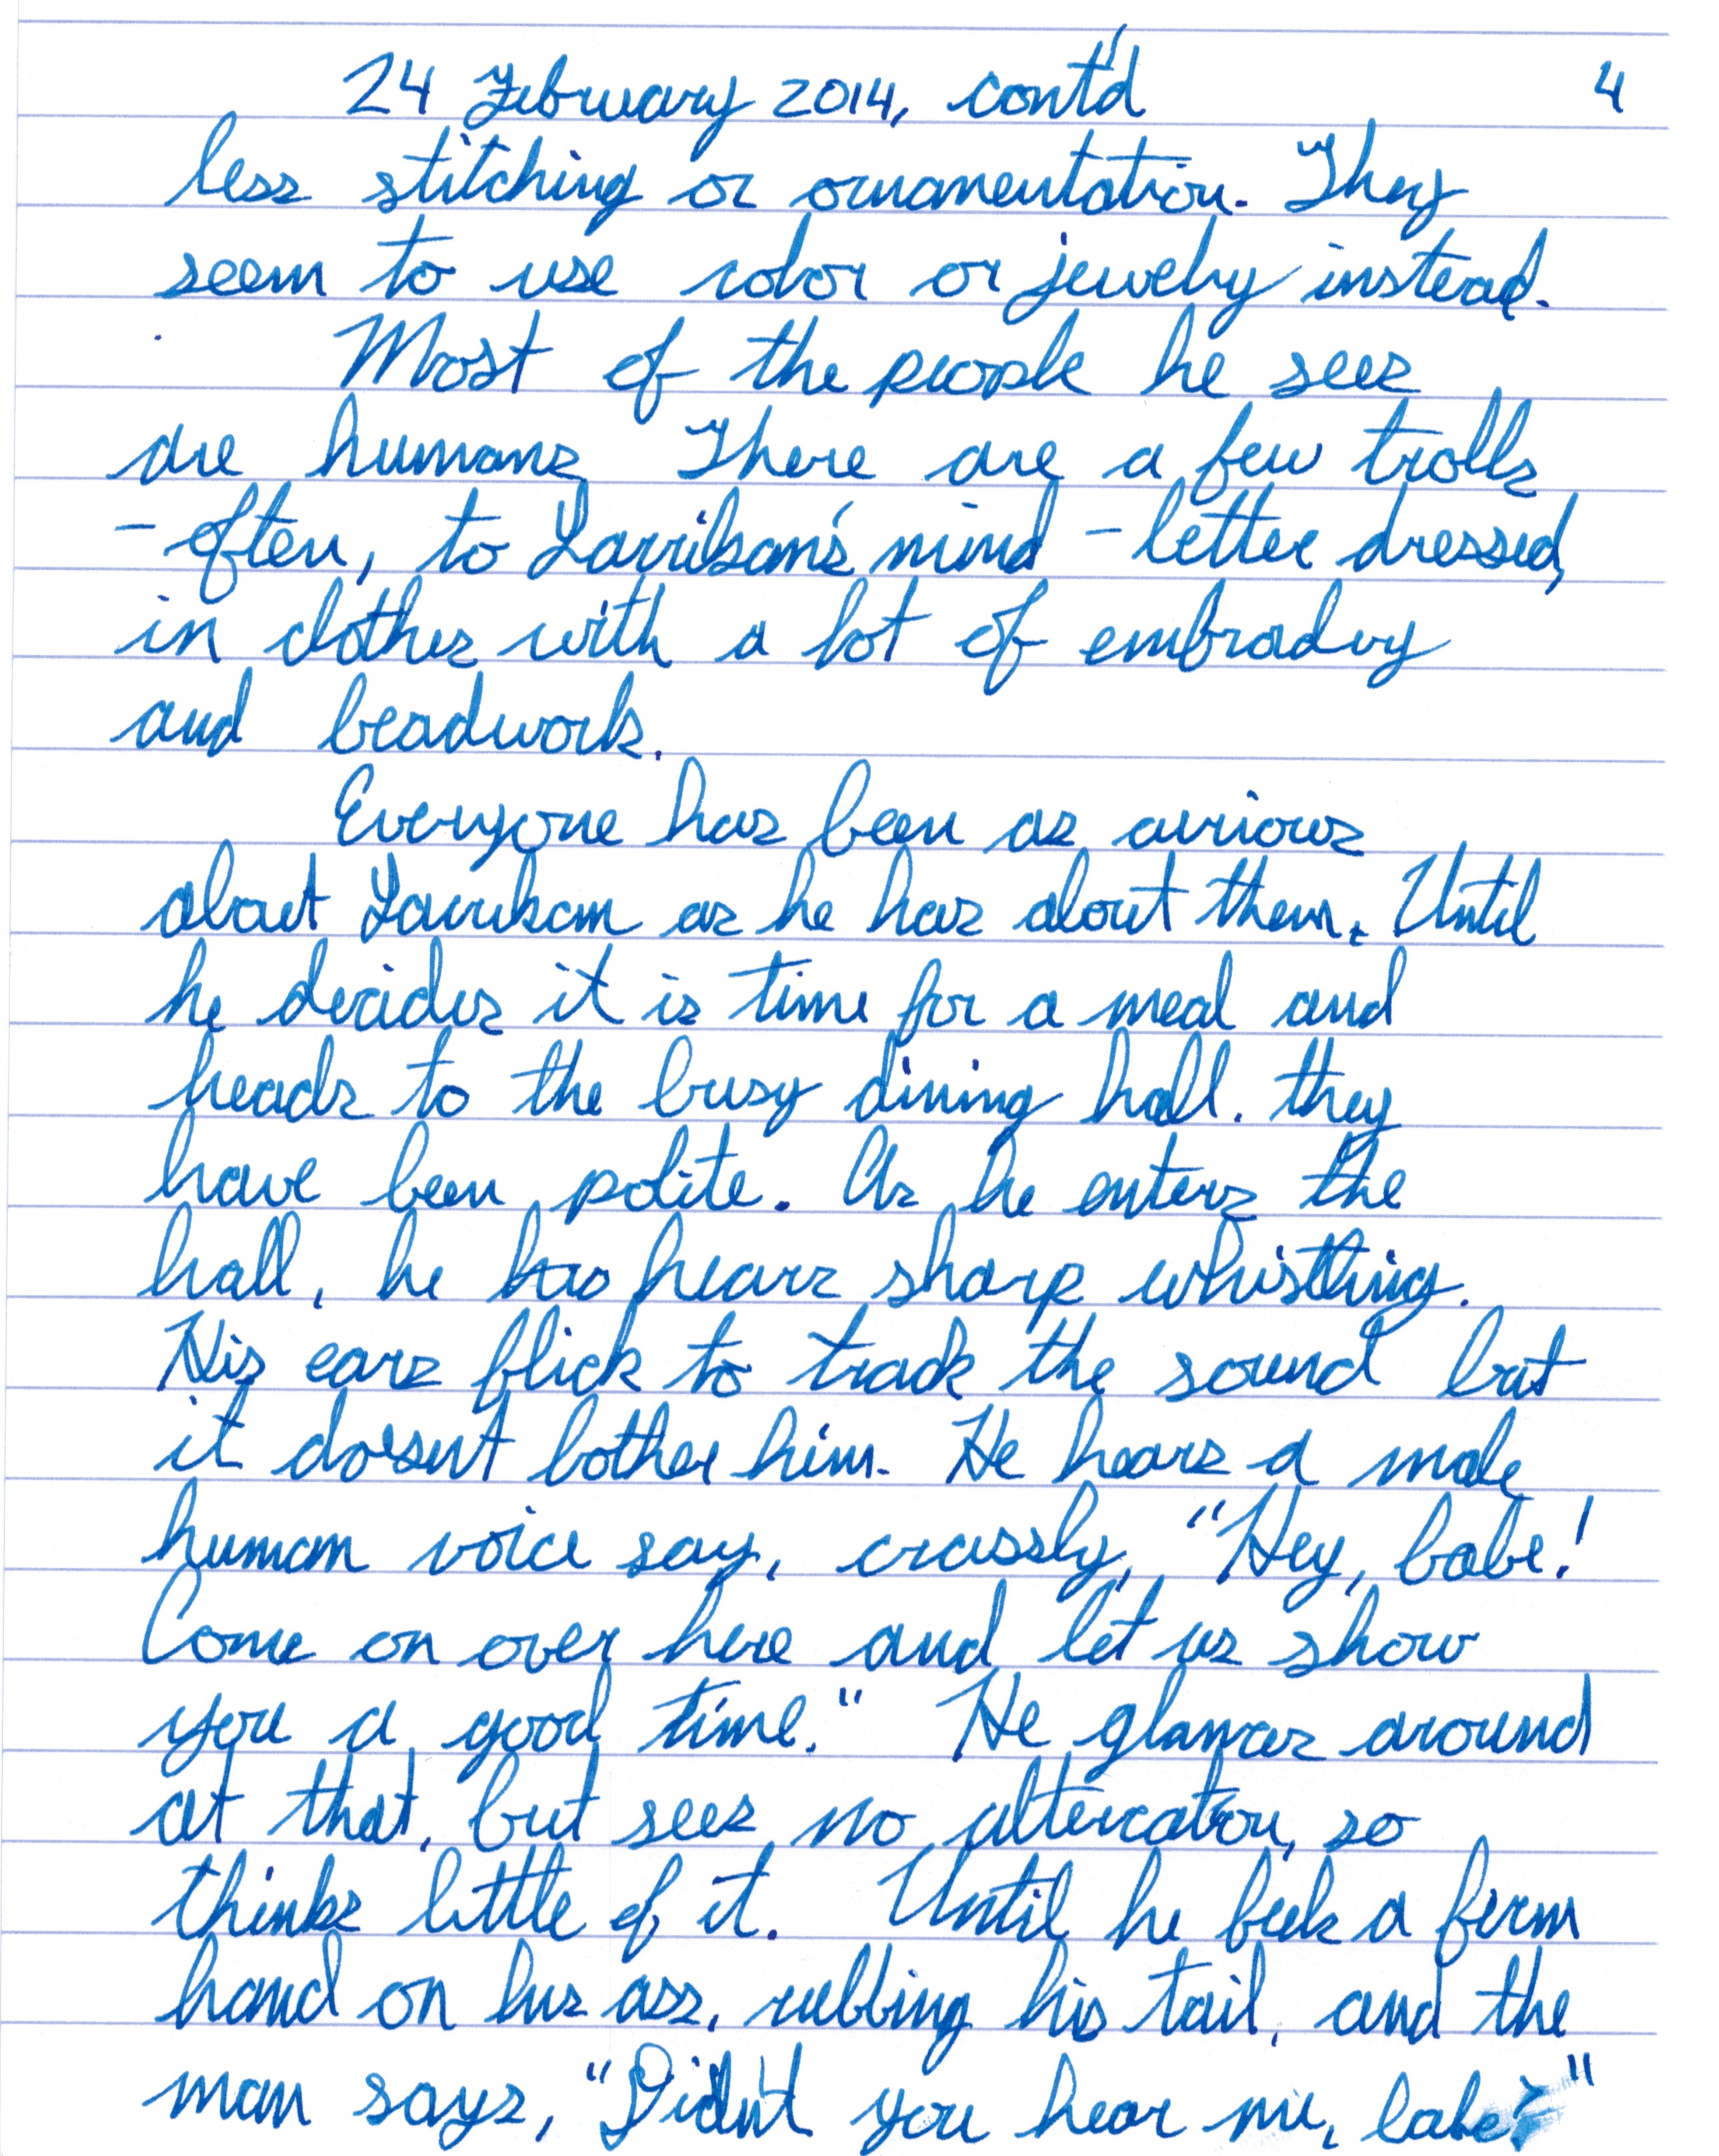 24 February 2014, cont'd 4
less stitching or ornamentation. They
seem to use color or jewelry instead.
Most of the people he sees
are humans. There are a few trolls
- often, to Larrikam's mind - better dressed,
in clothes with a lot of embrodery
and beadwork.
Everyone has been as curious
about Larrikam as he has about them. Until
he decides it is time for a meal and
heads to the busy dining hall. they
have been polite. As he enters the
hall, he has hears sharp whistling.
His ears flick to track the sound but
it doesn't bother him. He hears a male
human voice say, crassly, "Hey, babe!
Come on over here and let us show
you a good time." He glances around
at that, but sees no altercation, so
thinks little of it. Until he feels a firm
hand on his ass, rubbing his tail, and the
man says, "Didn't you hear me, babe?"